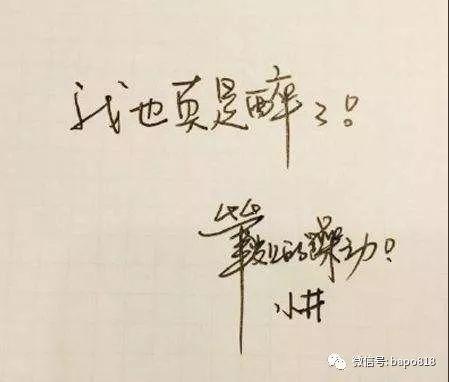 我也真是醉了!
的躁动!
小井
微信号: bapo818